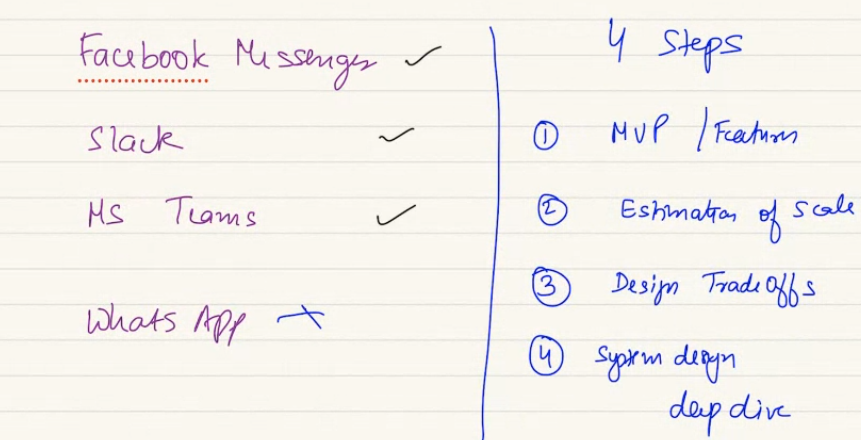 Facebook Messenger ✓
Slack ✓
MS Teams ✓
WhatsApp ✗
4 Steps
① MVP / Features
② Estimation of scale
③ Design TradeOffs
④ System design
deep dive